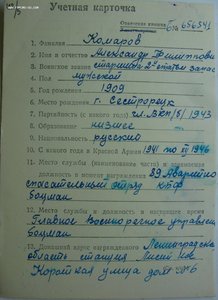 Учетная карточка
№ 656541
1. Фамилия Комаров
2. Имя и отчество Александр Филиппович
3. Воинское звание старшина 2й статьи запас
4. Пол мужской
5. Год рождения 1909
6. Место рождения г. Сестрорецк
7. Партийность (с какого года) чл. ВКП/б/ 1943
8. Образование низшее
9. Национальность русский
10. С какого года в Красной Армии 1941 по 1946
11. Место службы (наименование части) и занимаемая
должность в момент награждения 89 Аварийно
спасательный отряд КБФ
боцман
12. Место службы и должность в настоящее время
Главное управление
боцман
13. Домашний адрес награжденного Ленинградская
область станция
Короткая улица дом